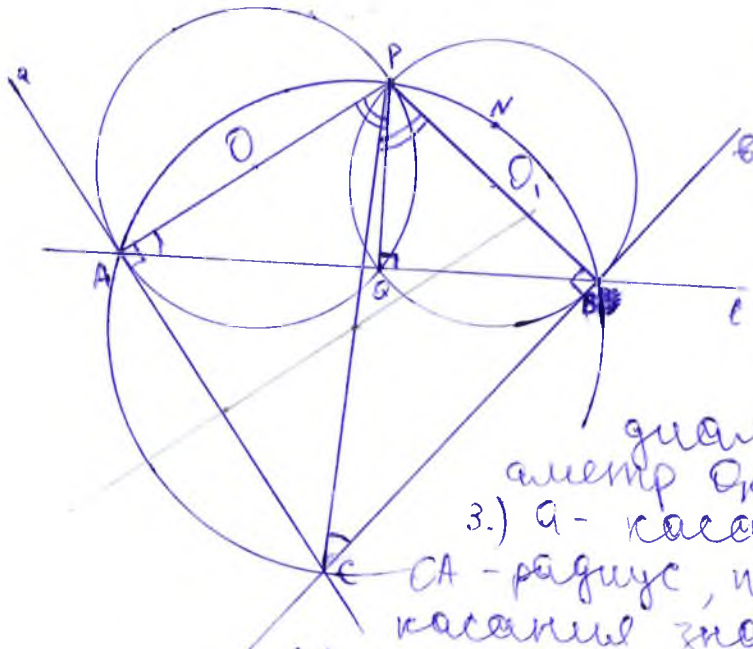 P
a
N
O
O₁
в
A
Q
B
l
диам
аметр O₁
3.) a - каса
C
OA - радиус, п
касания зна